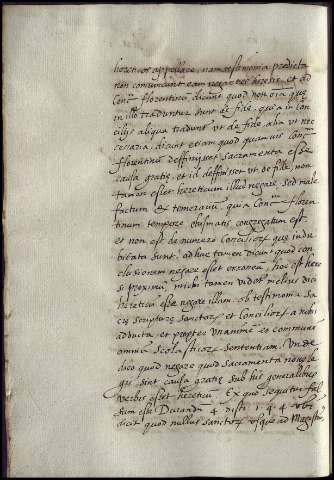 hereticos appellare, nam testimonia predicta
non convincunt eam negantes heresis, et ad
Conc. florentinum dicunt quod non oia que
in illo traduntur sunt de fide, quia in con
cilijs aliqua tradunt ut de fide alia ut ne
cessaria, dicunt etiam quod quamvis Conc.
florentinum deffinisset sacramenta esse
causa gratie, et id deffinisset ut de fide, non
tamen esset hereticum illud negare, sed male
factum & temerarium, quia Conc. floren
tinum tempore schismatis congregatum est
et non est de numero Conciliorum que indu
bitata sunt, adhuc tamen dicunt quod con
clusionem negare esset erroneum, hoc est here
si proximum, mihi tamen videtur melius dici
hereticum esse negare illam, ob testimonia sa
cre scripture sanctorum et Conciliorum a nobis
adducta et propter unanimem et communem
omnium scolasticorum sententiam. Unde
dico quod negare quod sacramenta nove le
gis sint causa gratie sub his generalibus
verbis esset hereticum. Ex quo sequitur fal
sum esse Durandum 4 dist. 1 q. 4 ubi
dicit quod nullus sanctorum usque ad Magistrum